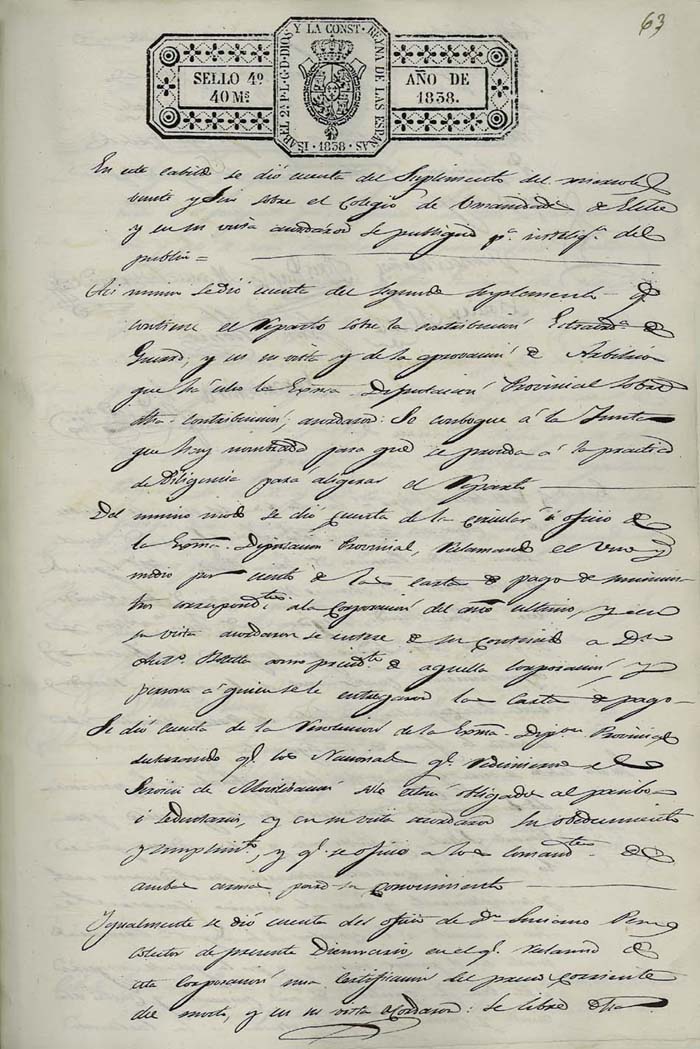 63
SELLO 4º
40 Ms
ISABEL 2ª P.L.G.D.DIOS Y LA CONST. REJNA DE LAS ESPAÑAS
1838
AÑO DE
1838.
En este cabildo se dió cuenta del Suplemento del
veinte y Seis sobre el Colegio de de
y en su vista acordaron se publique pª del
publico =
Asi mismo se dió cuenta del segundo Suplemento q
contiene el Reparto sobre la contribucion Extraordª de
Guerra, y en su vista y de la aprovacion de Arbitrios
que ha la Exma. Diputacion Provincial sobre
dha. contribucion, acordaron: Se conboque á la Junta
que hay nombrada para que se proceda á la practica
de Diligencias para aligerar el Reparto
Del mismo modo se dió cuenta de la circular ú oficio de
la Exma. Diputacion Provincial, Reclamando el Uno y
medio por ciento de las cartas de pago de suminis
tros correspondtes á la Corporacion del año ultimo, y en
su vista acordaron se entere de su contenido a Dn
Antº. como presidte de aquella Corporacion, y
persona á quien se le entregaron las Cartas de pago
Se dió cuenta de la Resolucion de la Exma. Dipon Provincial
declarando q. los Nacionales q. Redimieron el
Servicio de Movilizacion solo estan obligados al
ó sedentario, y en su vista acordaron su obedecimiento
y cumplimto, y q. se oficie a los Comandtes de
ambas armas para su conocimiento
Igualmente se dió cuenta del oficio de Dn
Colector de presente Diezmario, en el q. Reclama de
esta Corporacion una Certificacion del precio corriente
del mosto, y en su vista acordaron: Se libre dha